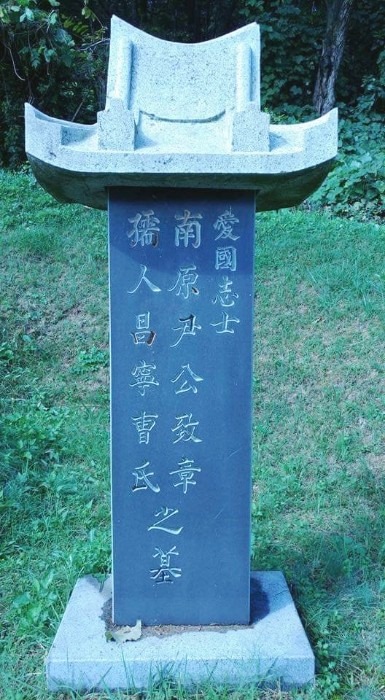 愛國志士
南原尹公致章
孺人昌寧曺氏
之墓